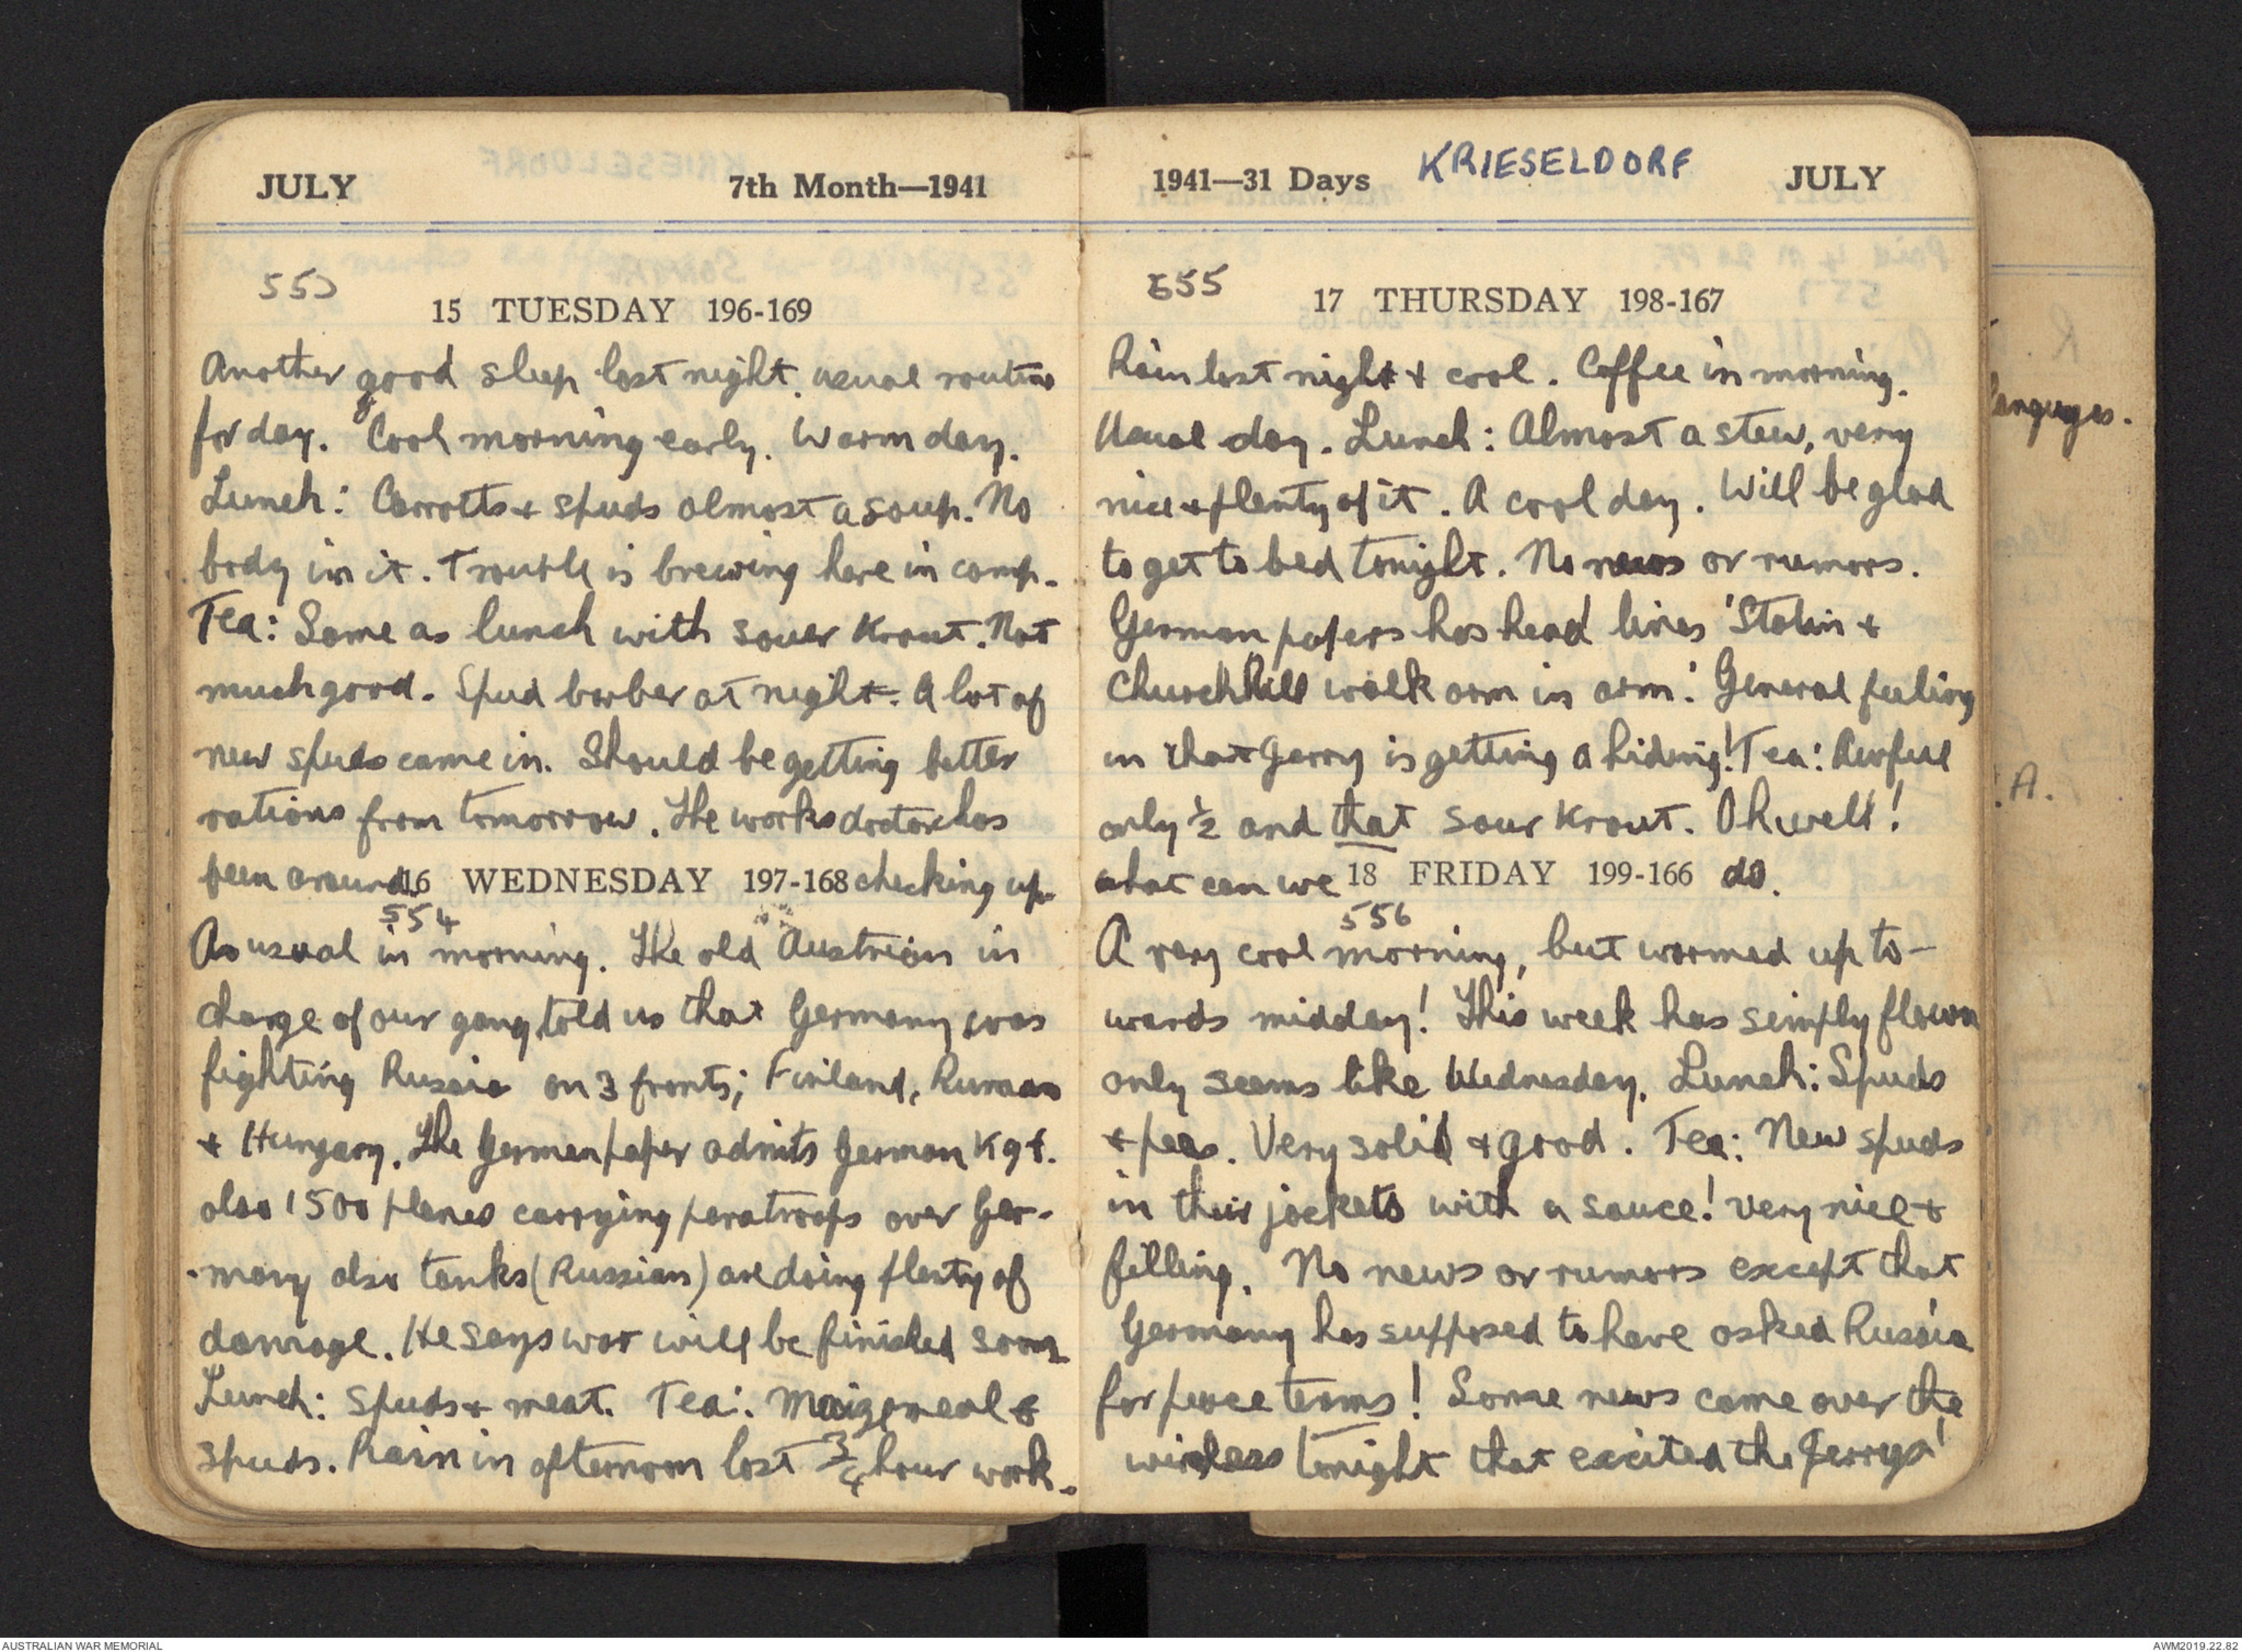 JULY 7th Month—1941
553
15 TUESDAY 196-169
Another good sleep last night. usual routine
for day. Cool morning early. Warm day.
Lunch: Carrotts + spuds almost a soup. No
body in it. Trouble is brewing here in camp.
Tea: Same as lunch with souer Krout. Not
much good. Spud barber at night. A lot of
new spuds came in. Should be getting better
rations from tomorrow. The works doctor has
been around checking up.
16 WEDNESDAY 197-168
554
As usual in morning. The old Austrian in
charge of our gang, told us that Germany was
fighting Russia on 3 fronts; Finland,
+ Hungary. The German paper admits German
also 1500 planes carrying paratroops over Ger-
-many also tanks (Russian) are doing plenty of
damage. He says war will be finished soon
Lunch: Spuds + meat. Tea: Maizemeal &
spuds. Rain in afternoon lost 3/4 hour work.
1941—31 Days KRIESELDORF JULY
555
17 THURSDAY 198-167
Rain last night + cool. Coffee in morning.
Usual day. Lunch: Almost a stew, very
nice + plenty of it. A cool day. Will be glad
to get to bed tonight. No news or rumors.
German papers has head lines 'Stalin +
Churchhill walk arm in arm.' General feeling
in that Gerry is getting a hiding! Tea: Awful
only ½ and that sour Krout. Oh well!
what can we do.
18 FRIDAY 199-166
556
A very cool morning, but warmed up to-
wards midday! This week has simply flown
only seems like Wednesday. Lunch: Spuds
+ peas. Very solid + good. Tea: New spuds
in their jackets with a sauce! very nice +
filling. No news or rumors except that
Germany has supposed to have asked Russia
for peace terms! Some news came over the
wireless tonight that excited the Jerrys!
A.
AUSTRALIAN WAR MEMORIAL
AWM2019.22.82